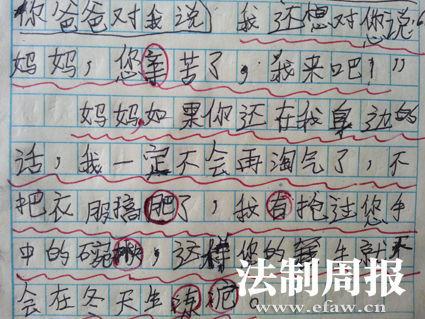 你爸爸对我说 我还想对您说:“
妈妈,您辛苦了,我来吧!”
妈妈,如果你还在我身边的
话,我一定不会再淘气了,不
把衣服搞肥了,我 抢过您手
中的碗 ,这样你的 手就不
会在冬天生冻 。
法制周报
www.efaw.cn